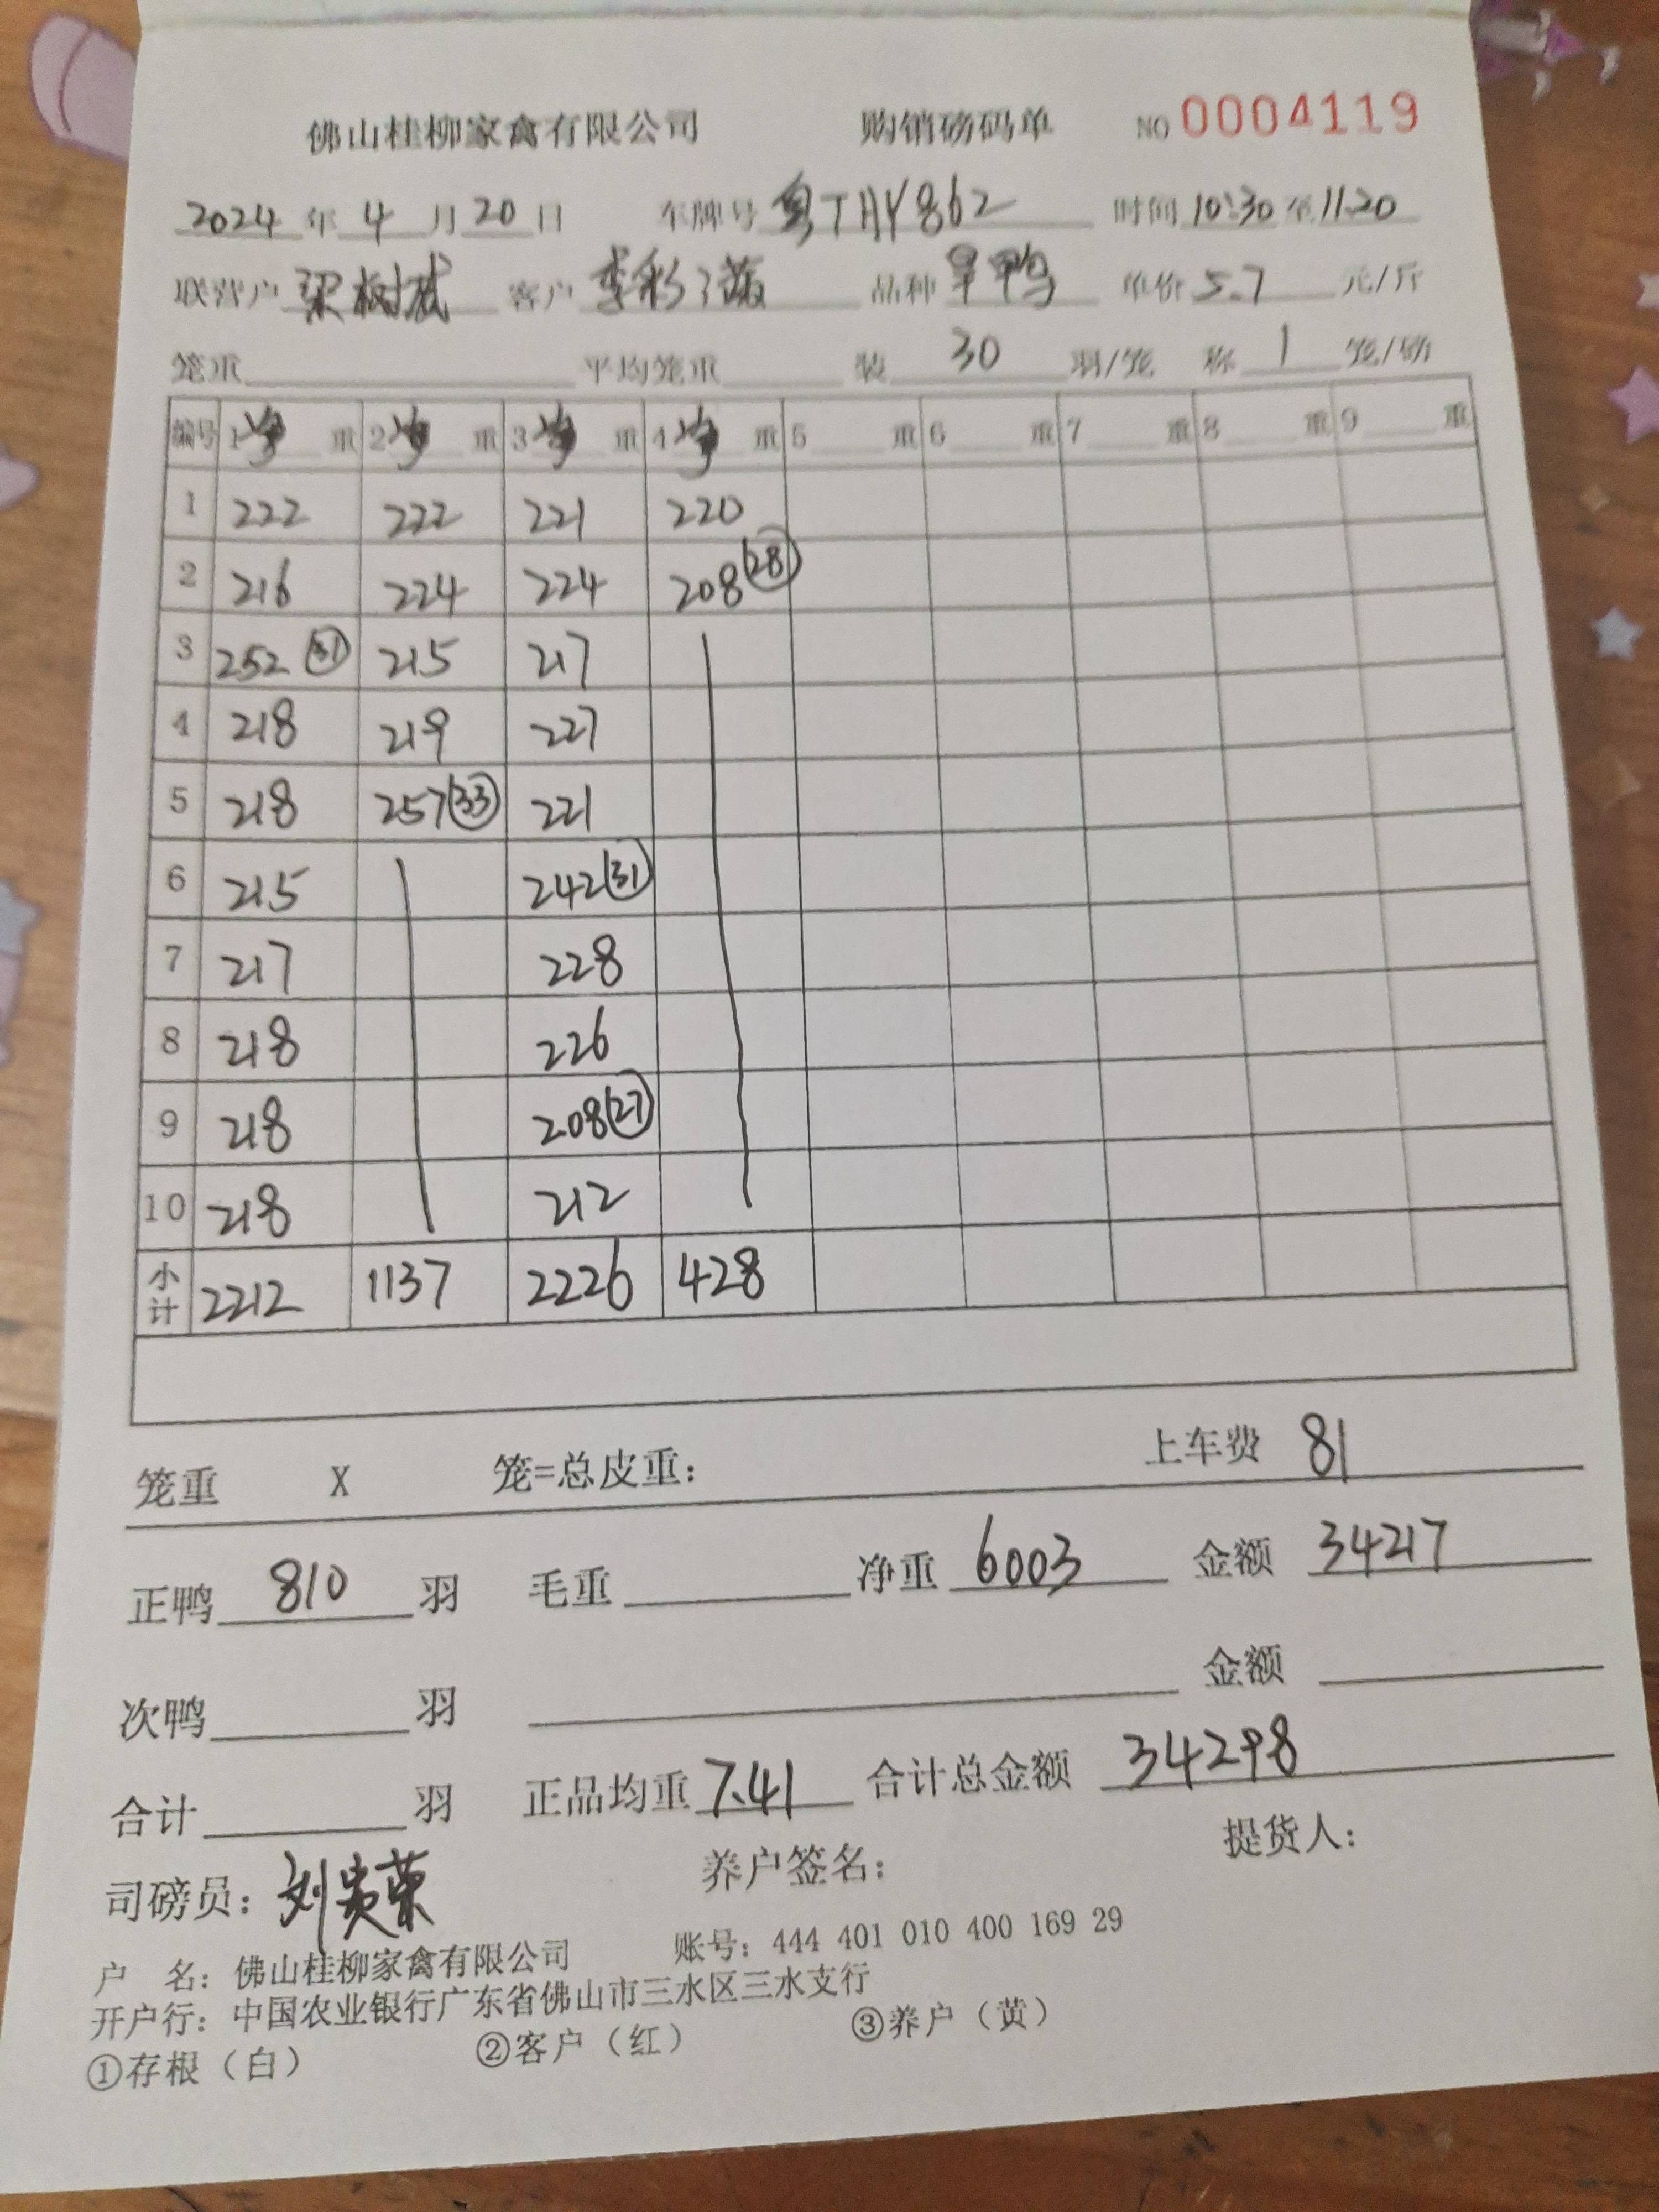 佛山桂柳家禽有限公司 购销磅码单 NO 0004119
2024年4月20日 车牌号粤THY862 时间10:30至11:20
联营户梁树斌 客户李彩 品种旱鸭 单价5.7元/斤
笼重 平均笼重 装30羽/笼 称1笼/磅
编号 1净重 2净重 3净重 4净重 5重 6重 7重 8重 9重
1 222 222 221 220
2 216 224 224 208(28)
3 252(31) 215 217
4 218 219 227
5 218 257(33) 221
6 215 242(31)
7 217 228
8 218 226
9 218 208(27)
10 218 212
小计 2212 1137 2226 428
笼重 X 笼=总皮重: 上车费 81
正鸭810羽 毛重 净重6003 金额34217
次鸭 羽 金额
合计 羽 正品均重7.41 合计总金额34298
司磅员:刘贵荣 养户签名: 提货人:
户 名: 佛山桂柳家禽有限公司 账号: 444 401 010 400 169 29
开户行: 中国农业银行广东省佛山市三水区三水支行
①存根（白） ②客户（红） ③养户（黄）